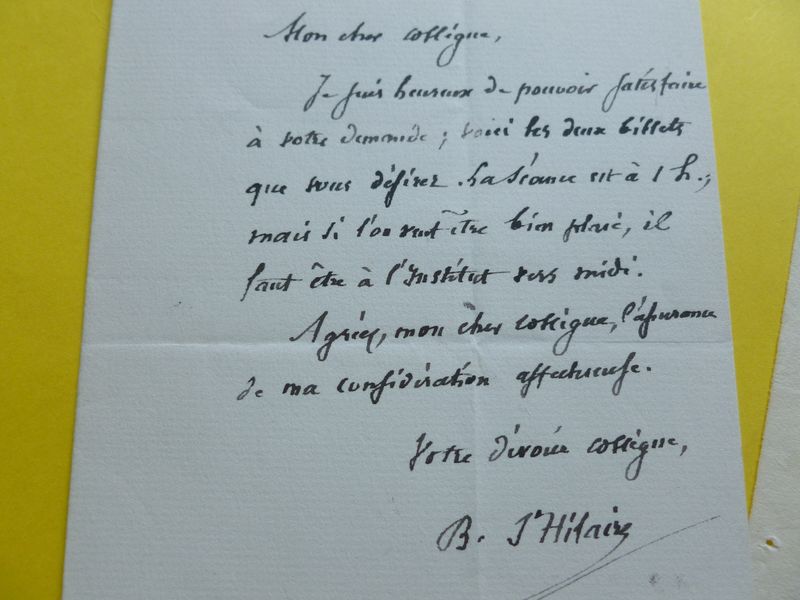 Mon cher collègue,
Je suis heureux de pouvoir satisfaire
à votre demande ; voici les deux billets
que vous désirez. La Séance est à 1 h.,
mais si l'on veut être bien placé, il
faut être à l'Institut vers midi.
Agréez, mon cher collègue, l'assurance
de ma considération affectueuse.
Votre dévoué collègue,
B. St Hilaire